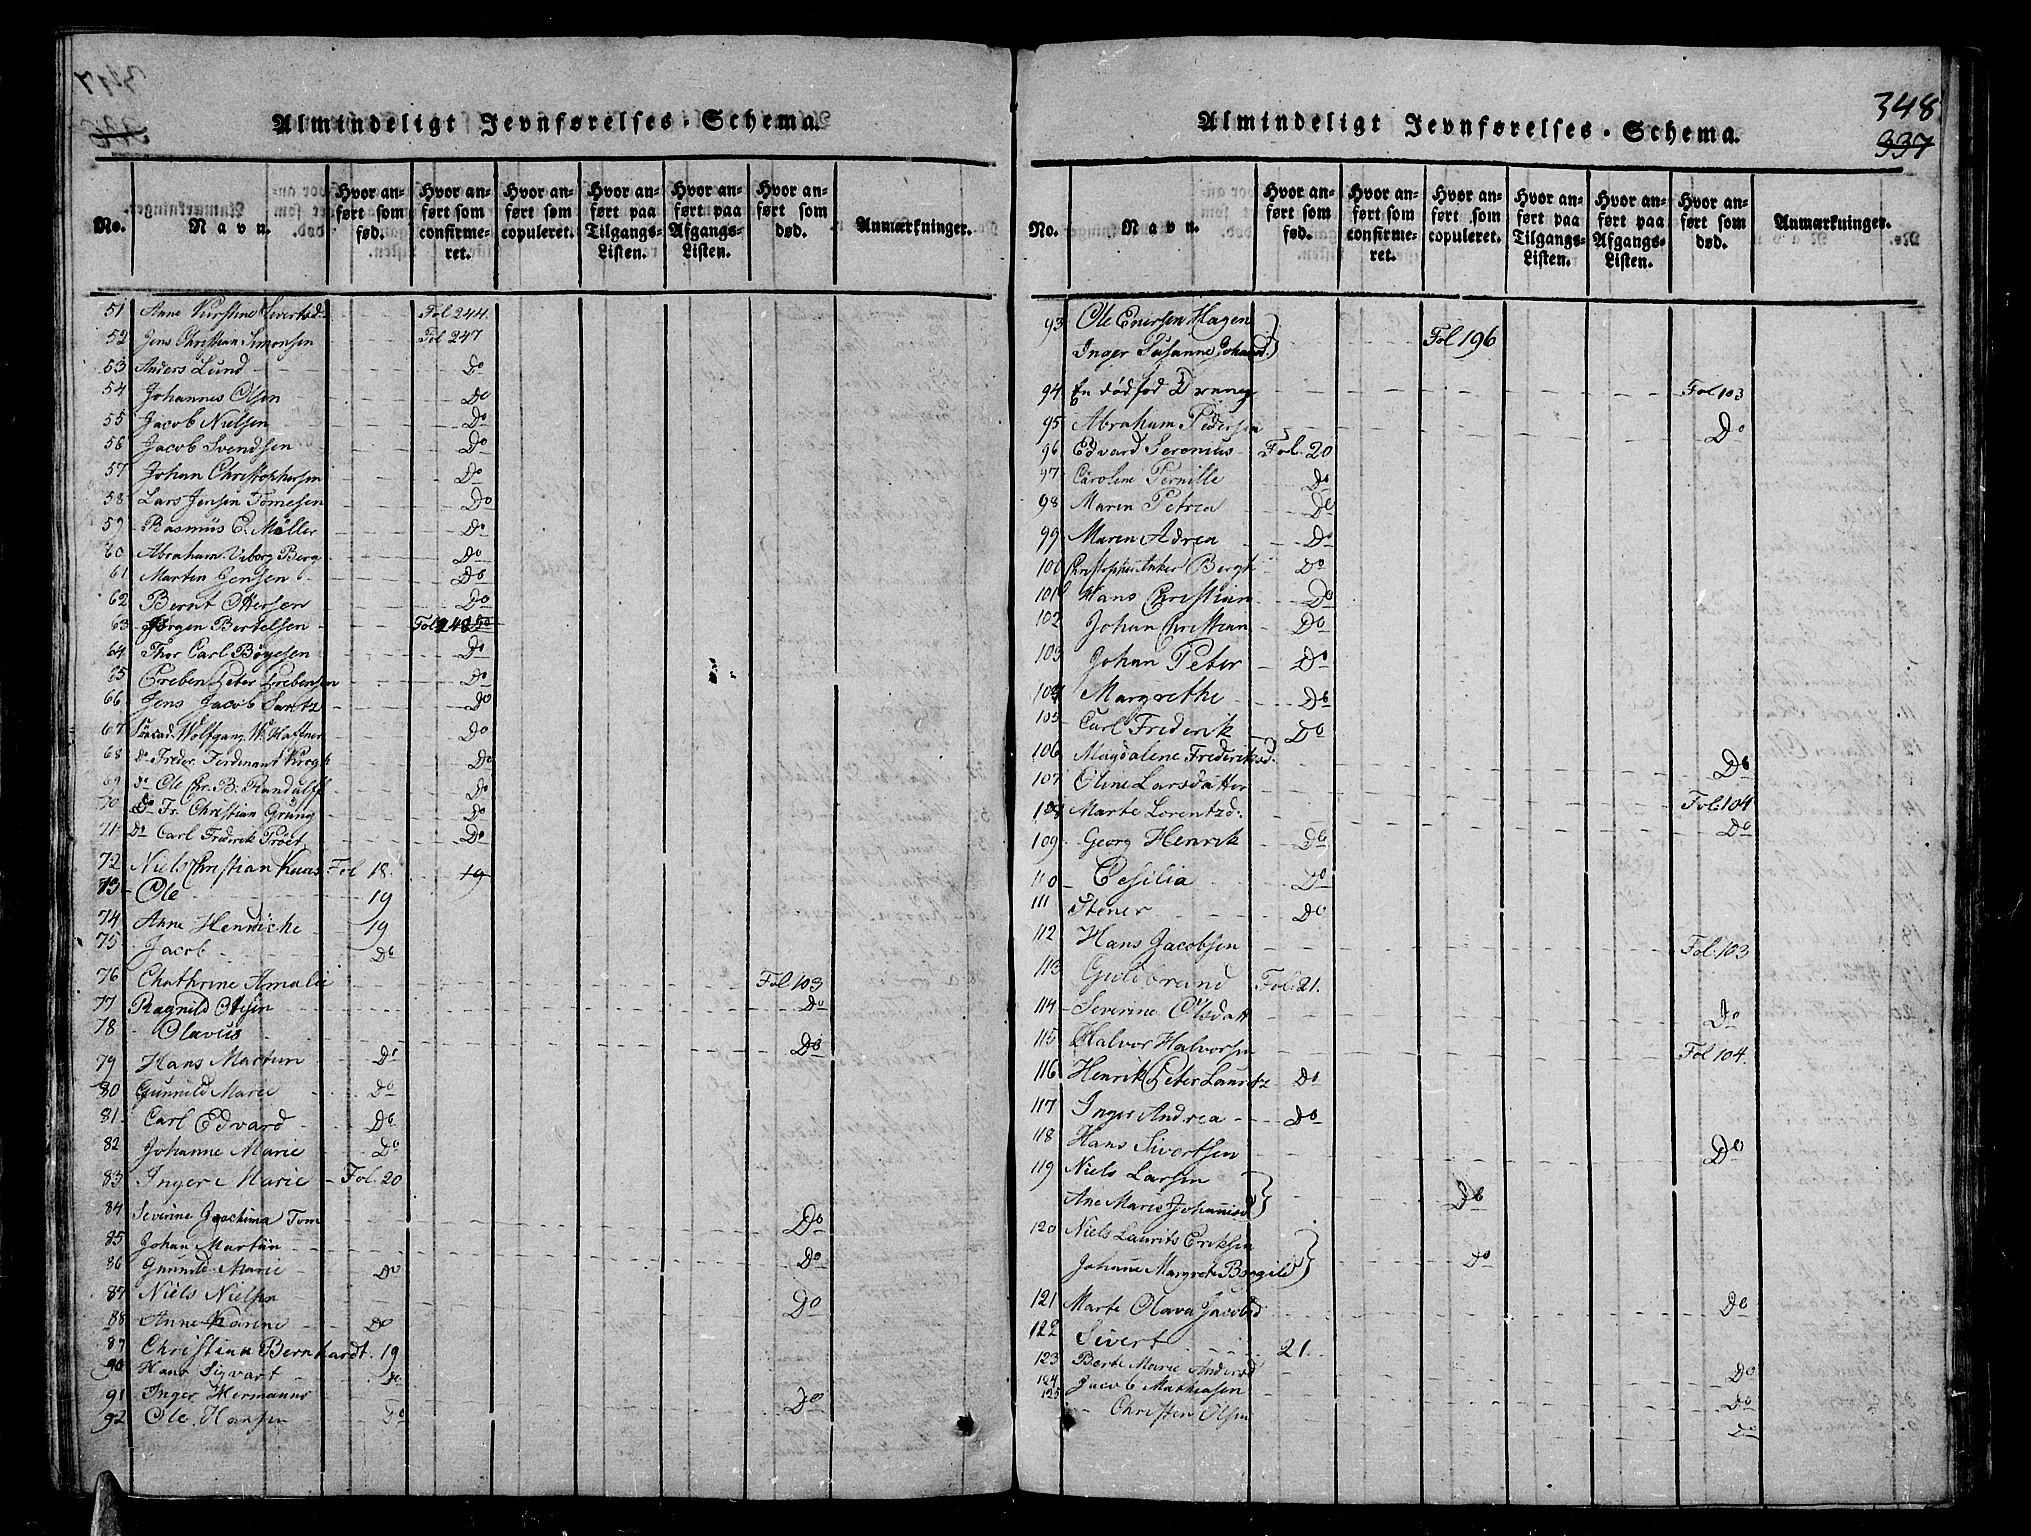 Almindeligt Jevnførelses-Schema.
No. Navn. Hvor anført som fød. Hvor anført som confirmeret. Hvor anført som copuleret. Hvor anført paa Tilgangs-Listen. Hvor anført paa Afgangs-Listen. Hvor anført som død. Anmærkninger.
51 Anne Kirstine Sivertsd. Fol 244.
52 Jens Christian Simonsen Fol 247
53 Anders Lund Do
54 Johannes Olsen Do
55 Jacob Nielsen Do
56 Jacob Svendsen Do
57 Johan Christophersen Do
58 Lars Jensen Tomesen Do
59 Rasmus C. Möller Do
60 Abraham Viborg Berg Do
61 Martin Jensen Do
62 Bernt Ottersen Do
63 Jørgen Bertelsen Fol 248 Do
64 Thor Carl Böyesen Do
65 Preben Peter Prebensen Do
66 Jens Jacob Do
67 Wolfgang W. Haffner Do
68 Do Freder. Ferdinant Krogh Do
69 Do Ole Chr. B. Randulff Do
70 Do Fr. Christian Grung Do
71 Do Carl Frederik Do
72 Niels Christian Fol 18. 19
73 Ole 19
74 Anne Henriche 19
75 Jacob Do
76 Chathrine Amalie Fol 103
77 Ragnild Olsen Do
78 Olavus Do
79 Hans Martin Do
80 Gunnild Marie Do
81 Carl Edvard Do
82 Johanne Marie Do
83 Inger Marie Fol. 20
84 Severine Jochima Tom Do
85 Johan Martin Do
86 Gunnild Marie Do
87 Niels Nielsen Do
88 Anne Karine Do
87 Christian Bernhardt 19
90 Hans Sigvart Do
91 Inger Hermanns Do
92 Ole Hansen Do
348
337
Almindeligt Jevnførelses-Schema.
No. Navn. Hvor anført som fød. Hvor anført som confirmeret. Hvor anført som copuleret. Hvor anført paa Tilgangs-Listen. Hvor anført paa Afgangs-Listen. Hvor anført som død. Anmærkninger.
93 Ole Enersen Hagen
Inger Susanne Johansd. Fol 196
94 En dødfød Dreng Fol. 103
95 Abraham Pedersen Do
96 Edvard Seronius Fol. 20
97 Caroline Pernille Do
98 Maren Petrea Do
99 Maren Adrea Do
100 Christopher Anker Bergh Do
101 Hans Christian Do
102 Johan Christian Do
103 Johan Peter Do
104 Margrethe Do
105 Carl Frederik Do
106 Magdalene Frederiksd. Do
107 Oline Larsdatter Fol. 104
108 Marte Lorentzd. Do
109 Georg Henrik Do
110 Cesilia Do
111 Stener Do
112 Hans Jacobsen Fol. 103
113 Guldbrand Fol. 21.
114 Severine Olsdatt Do
115 Halvor Halvorsen Fol 104.
116 Henrik Peter Lauritz Do
117 Inger Andrea Do
118 Hans Sivertsen Do
119 Niels Larsen
Ane Marie Johannisd Do
120 Niels Laurits Eriksen
Johanne Margrete Do
121 Marte Olava Jacobsd Do
122 Sivert 21.
123 Berte Marie Andersd Do
124 Jacob Mathiasen Do
125 Christen Olsen Do